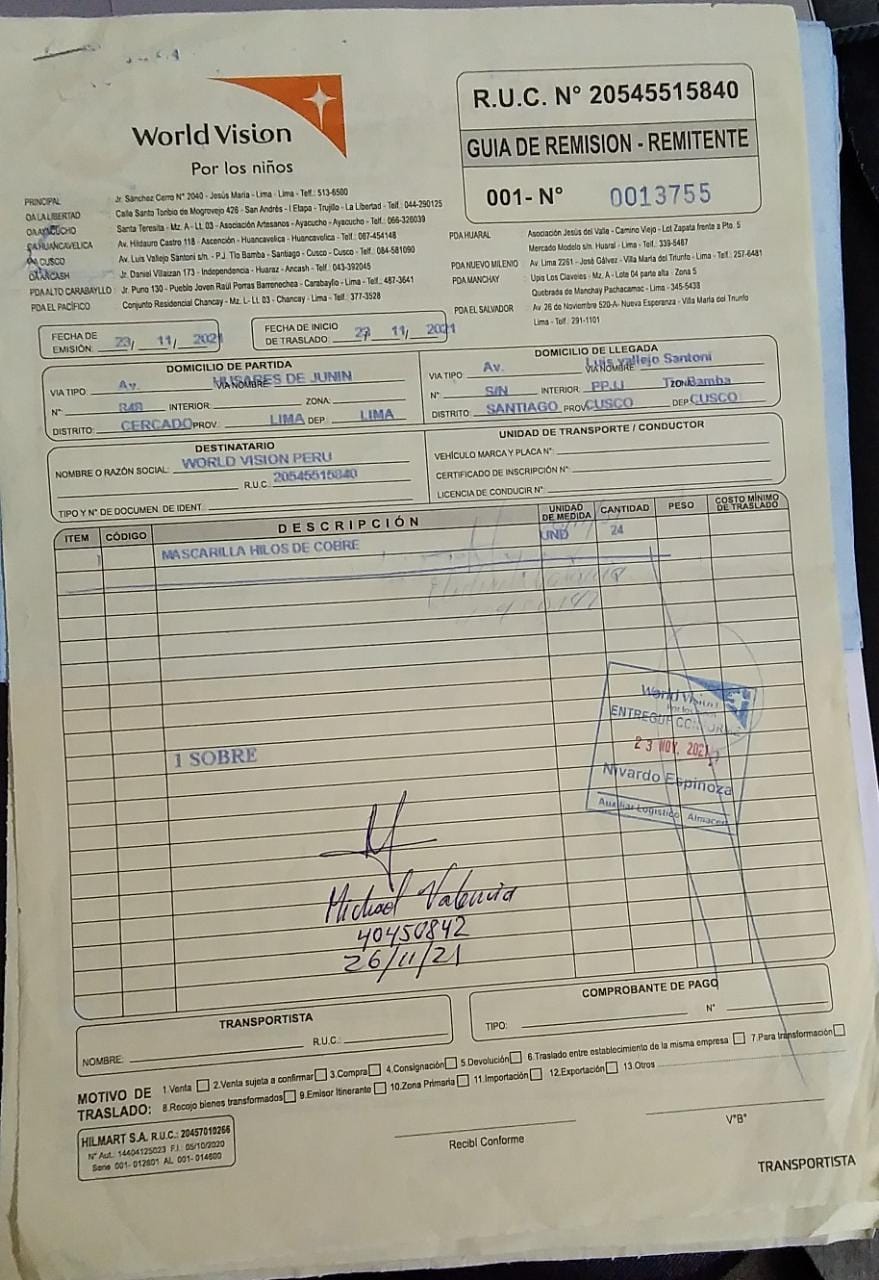 World Vision
Por los niños
R.U.C. N° 20545515840
GUIA DE REMISION - REMITENTE
001- N° 0013755
PRINCIPAL Jr. Sánchez Cerro N° 2040 - Jesús María - Lima - Lima - Telf.: 513-6500
OA LA LIBERTAD Calle Santo Toribio de Mogrovejo 426 - San Andrés - I Etapa - Trujillo - La Libertad - Telf.: 044-290125
OA AYACUCHO Santa Teresita - Mz. A - LL 03 - Asociación Artesanos - Ayacucho - Ayacucho - Telf.: 066-326039
OA HUANCAVELICA Av. Hildauro Castro 118 - Ascención - Huancavelica - Huancavelica - Telf.: 067-454148
OA CUSCO Av. Luis Vallejo Santoni s/n. - P.J. Tío Bamba - Santiago - Cusco - Cusco - Telf.: 084-581090
OA ANCASH Jr. Daniel Villaizan 173 - Independencia - Huaraz - Ancash - Telf.: 043-392045
PDA ALTO CARABAYLLO Jr. Puno 130 - Pueblo Joven Raúl Porras Barrenechea - Carabayllo - Lima - Telf.: 487-3641
PDA EL PACÍFICO Conjunto Residencial Chancay - Mz. L- LL 03 - Chancay - Lima - Telf.: 377-3528
PDA HUARAL Asociación Jesús del Valle - Camino Viejo - Lot Zapata frente a Pto. 5
Mercado Modelo s/n. Huaral - Lima - Telf.: 339-5487
PDA NUEVO MILENIO Av. Lima 2261 - José Gálvez - Villa María del Triunfo - Lima - Telf.: 257-6481
PDA MANCHAY Upis Los Claveles - Mz. A - Lote 04 parte alta - Zona 5
Quebrada de Manchay Pachacamac - Lima - 345-5438
PDA EL SALVADOR Av. 26 de Noviembre 520-A- Nueva Esperanza - Villa María del Triunfo
Lima - Telf.: 291-1101
FECHA DE EMISIÓN: 23/ 11 / 2021
FECHA DE INICIO DE TRASLADO: 23/ 11 / 2021
DOMICILIO DE PARTIDA
VIA TIPO: Av. VIA NOMBRE: HUSARES DE JUNIN
N°: INTERIOR: ZONA:
DISTRITO: CERCADO PROV.: LIMA DEP.: LIMA
DOMICILIO DE LLEGADA
VIA TIPO: Av. VIA NOMBRE: Luis Vallejo Santoni
N°: S/N INTERIOR: PP.JJ ZONA: Tio Bamba
DISTRITO: SANTIAGO PROV. CUSCO DEP. CUSCO
DESTINATARIO
NOMBRE O RAZÓN SOCIAL: WORLD VISION PERU
R.U.C. 20545515840
TIPO Y N° DE DOCUMEN. DE IDENT.
UNIDAD DE TRANSPORTE / CONDUCTOR
VEHÍCULO MARCA Y PLACA N°:
CERTIFICADO DE INSCRIPCIÓN N°:
LICENCIA DE CONDUCIR N°:
ITEM CÓDIGO DESCRIPCIÓN UNIDAD DE MEDIDA CANTIDAD PESO COSTO MÍNIMO DE TRASLADO
1 MASCARILLA HILOS DE COBRE UND 24
World Vision
Por los niños
ENTREGUE CONFORME
23 NOV. 2021
Nivardo Espinoza
Auxiliar Logistico Almacen
1 SOBRE
Michael Valencia
40450842
26/11/21
TRANSPORTISTA
NOMBRE: R.U.C.:
COMPROBANTE DE PAGO
TIPO: N°
MOTIVO DE TRASLADO: 1.Venta 2.Venta sujeta a confirmar 3.Compra 4.Consignación 5.Devolución 6.Traslado entre establecimiento de la misma empresa 7.Para transformación
8.Recojo bienes transformados 9.Emisor Itinerante 10.Zona Primaria 11.Importación 12.Exportación 13.Otros
HILMART S.A. R.U.C.: 20457010266
N° Aut.: 14404125023 F.I. 05/10/2020
Serie 001- 012801 AL 001- 014800
Recibí Conforme
V°B°
TRANSPORTISTA